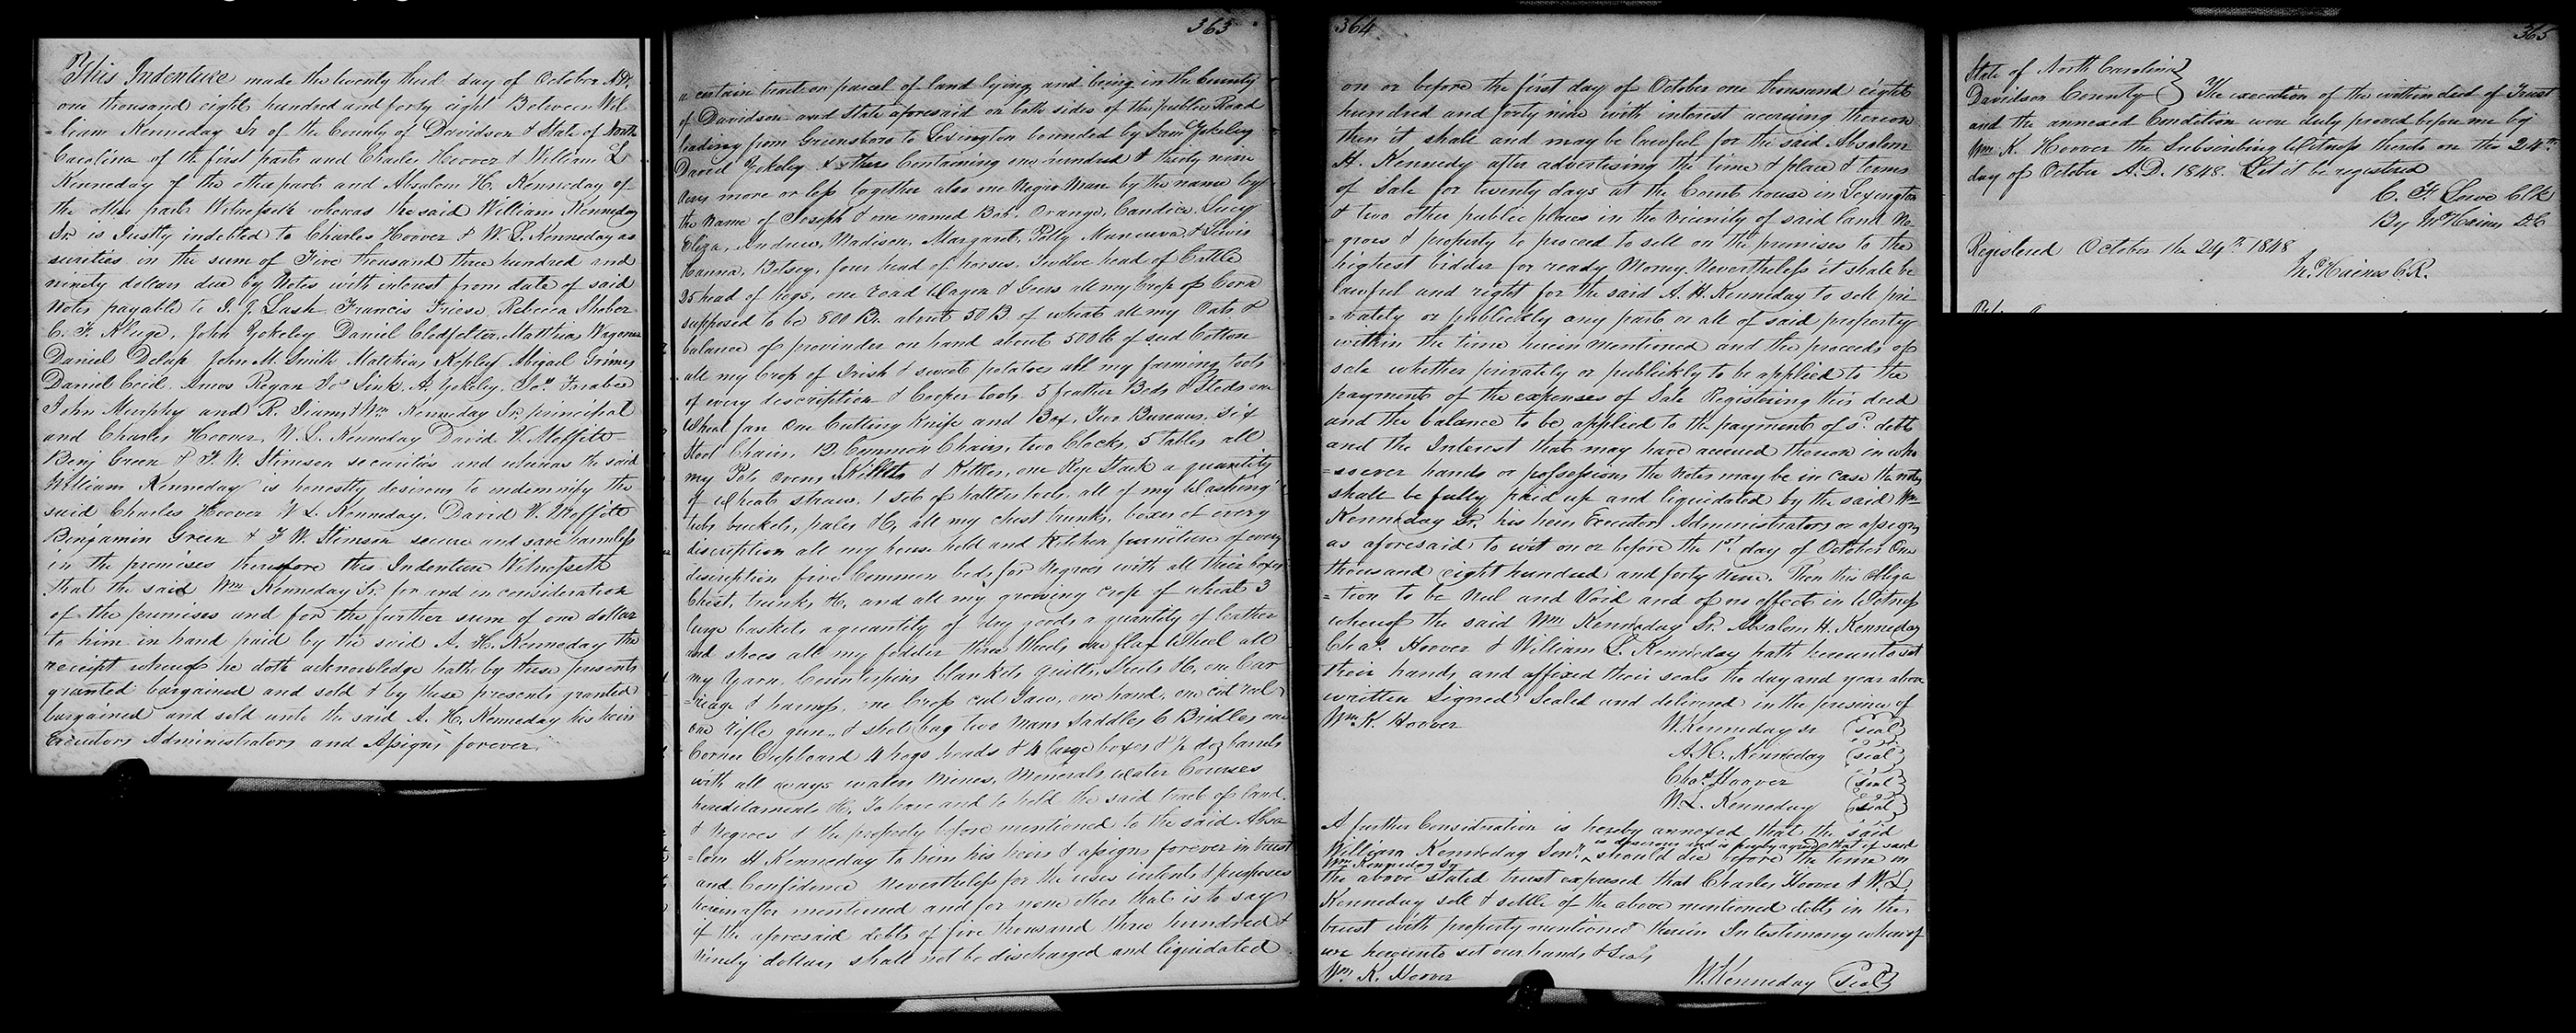 This Indenture made the twenty third day of October A.D.
one thousand eight hundred and forty eight Between Wil
=liam Kenneday Sr of the County of Davidson & State of North
Carolina of the first part and Charles Hoover & William L
Kenneday of the other part and Absalom H. Kenneday of
the other part Witnesseth whereas the said William Kenneday
Sr. is Justly indebted to Charles Hoover & W. L. Kenneday as
surities in the sum of Five thousand three hundred and
ninety dollars due by Notes with interest from date of said
Notes payable to I. G. Lash Francis Friese, Rebecca Shober
C. F. Kluge, John Yokeley Daniel Clodfelter, Matthias Wagoner
Daniel Delap John M. Smith Matthias Kepley Abigail Grimes
Daniel Cecil, Amos Regan Jos Sink, A, Yokeley, Jos.
John Murphy and R. & Wm Kenneday Sr. principal
and Charles Hoover, W. L. Kenneday David W. Moffitt
Benj Green & F. W. Stimson securities and whereas the said
William Kenneday is honestly desirous to indemnify the
said Charles Hoover W L. Kenneday, David W. Moffitt
Benjamin Green & F W. Stimson secure and save harmless
in the premises therefore this Indenture Witnesseth
that the said Wm Kenneday Sr. for and in consideration
of the premises and for the further sum of one dollar
to him in hand paid by the said A. H. Kenneday the
receipt whereof he doth acknowledge hath by these presents
granted bargained and sold & by these presents granted
bargained and sold unto the said A. H. Kenneday his heirs
Executors Administrators and Assigns forever
363
a certain tract or parcel of land lying and being in the County
of Davidson and State aforesaid on both sides of the public Road
leading from Greensboro to Lexington bounded by Sam Yokeley
David Yokeley & others Containing one hundred & thirty nine
Acres more or less together also one Negro Man by the name by
the Name of Joseph & one named Bob. Orange, Candice, Lucy
Eliza, Andrew, Madison, Margaret, Polly Manerva & Lewis
Hanna, Betsey, four head of horses, Twelve head of Cattle
25 head of hogs, one road Wagon & Gears all my Crop of Corn
supposed to be 800 Bu. about 50 B of wheat all my Oats &
balance of provinder on hand about 500 lb of seed Cotton
all my Crop of Irish & sweet potatoes all my farming tools
of every description & Cooper tools 5 feather Beds & Steds one
Wheat fan One Cutting Knife and Box, Two Bureaus, six
Stool Chairs, 12 Common Chairs, two Clocks, 5 Tables all
my Pots ovens Skillets & Kittles, one Rye Stack a quantity
of Wheat straw, 1 set of hatters tools, all of my Washing
tubs buckets, pales &c, all my chest trunks, boxes of every
discription all my house hold and Kitchen furniture of every
discription five Common beds for Negroes with all their boxes
Chest, trunks &c, and all my growing crop of wheat 3
large baskets a quantity of dry goods a quantity of leather
and shoes all my fodder three Wheels one flax Wheel all
my Yarn, Counterpins blankets quilts, Sheets &c, one Car
=riage & harness, one Cross cut Saw, one hand, one reel
one rifle gun & shot bag two Mans Saddles 6 Bridles one
Corner Cupboard 4 hogs heads & 4 large boxes & ½ doz barrels
with all ways waters Mienes, Minerals water Courses
hereditaments &c, To have and to hold the said tract of land
& Negroes & the property before mentioned to the said Absa
=lom H Kenneday to him his heirs & assigns forever in trust
and Confidence Nevertheless for the uses intents & purposes
hereinafter mentioned and for none other that is to say
if the aforesaid debts of five thousand three hundred &
Ninety dollars shall not be discharged and liquidated
364
on or before the first day of October one thousand eight
hundred and forty nine with interest accruing thereon
then it shall and may be lawful for the said Absalom
H. Kennedy after advertising the time & place & terms
of Sale for twenty days at the Court house in Lexington
& two other public places in the vicinity of said land Ne
=groes & property to proceed to sell on the premises to the
highest bidder for ready Money. Nevertheless it shall be
lawful and right for the said A. H. Kenneday to sell pri
=vately or publickly any part or all of said property
within the time herein mentioned and the proceeds of
sale whether privately or publickly to be applied to the
payment of the expenses of Sale Registering this deed
and the balance to be applied to the payment of sd. debts
and the Interest that may have accrued thereon in who
=soever hands or possessions the Notes may be in case the notes
shall be fully paid up and liquidated by the said Wm
Kenneday Sr. his heirs Executors Administrators or assigns
as aforesaid to wit on or before the 1st. day of October One
thousand eight hundred and forty Nine. Then this obliga
=tion to be Nul and Void and of no effect in Witness
whereof the said Wm Kenneday Sr. Absalom H. Kenneday
Chas. Hoover & William L. Kenneday hath hereunto set
their hands and affixed their seals the day and year above
written Signed Sealed and delivered in the presence of
Wm K. Hoover W. Kenneday Sr (seal)
A. H. Kenneday (seal)
Chas Hoover (seal)
W. L. Kenneday (seal)
A further Consideration is hereby annexed that the said
William Kenneday Senr. is desirous and is hereby agreed that if said
Wm Kenneday Sr should die before the time in
the above stated trust expressed that Charles Hoover & W. L
Kenneday sell & settle of the above mentioned debts in the
trust with property mentioned therein In testimony whereof
we hereunto set our hands & Seals
Wm K. Hoover W. Kenneday (Seal)
365
State of North Carolina
Davidson County The execution of the within deed of Trust
and the annexed Condition were duly proved before me by
Wm K. Hoover the Subscribing Witness thereto on this 24th
day of October A.D. 1848. Let it be registered
C. F. Lowe Clk
By Haines D.C
Registered October the 24th 1848
Haines P.R.